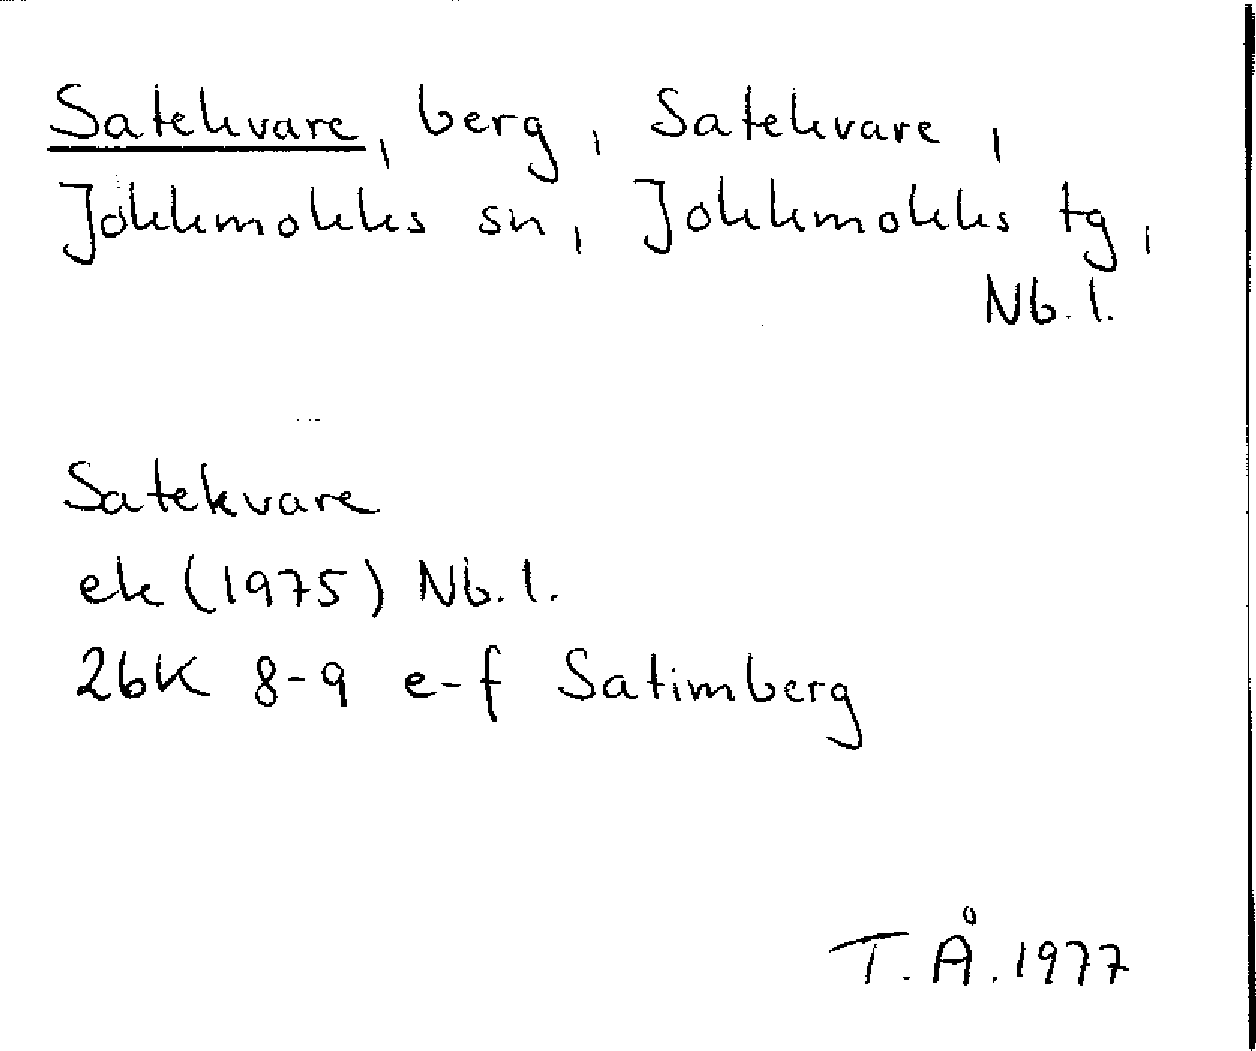 Satekvare, berg, Satekvare,
Jokkmokks sn, Jokkmokks tg,
Nb. l.
Satekvare
ek (1975) Nb. l.
26K 8-9 e-f Satimberg
T. Å. 1977